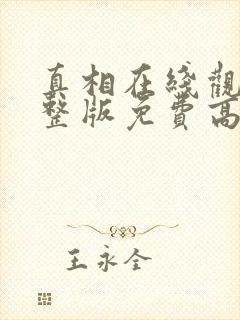 真相在线觀
整版免費高
王永全